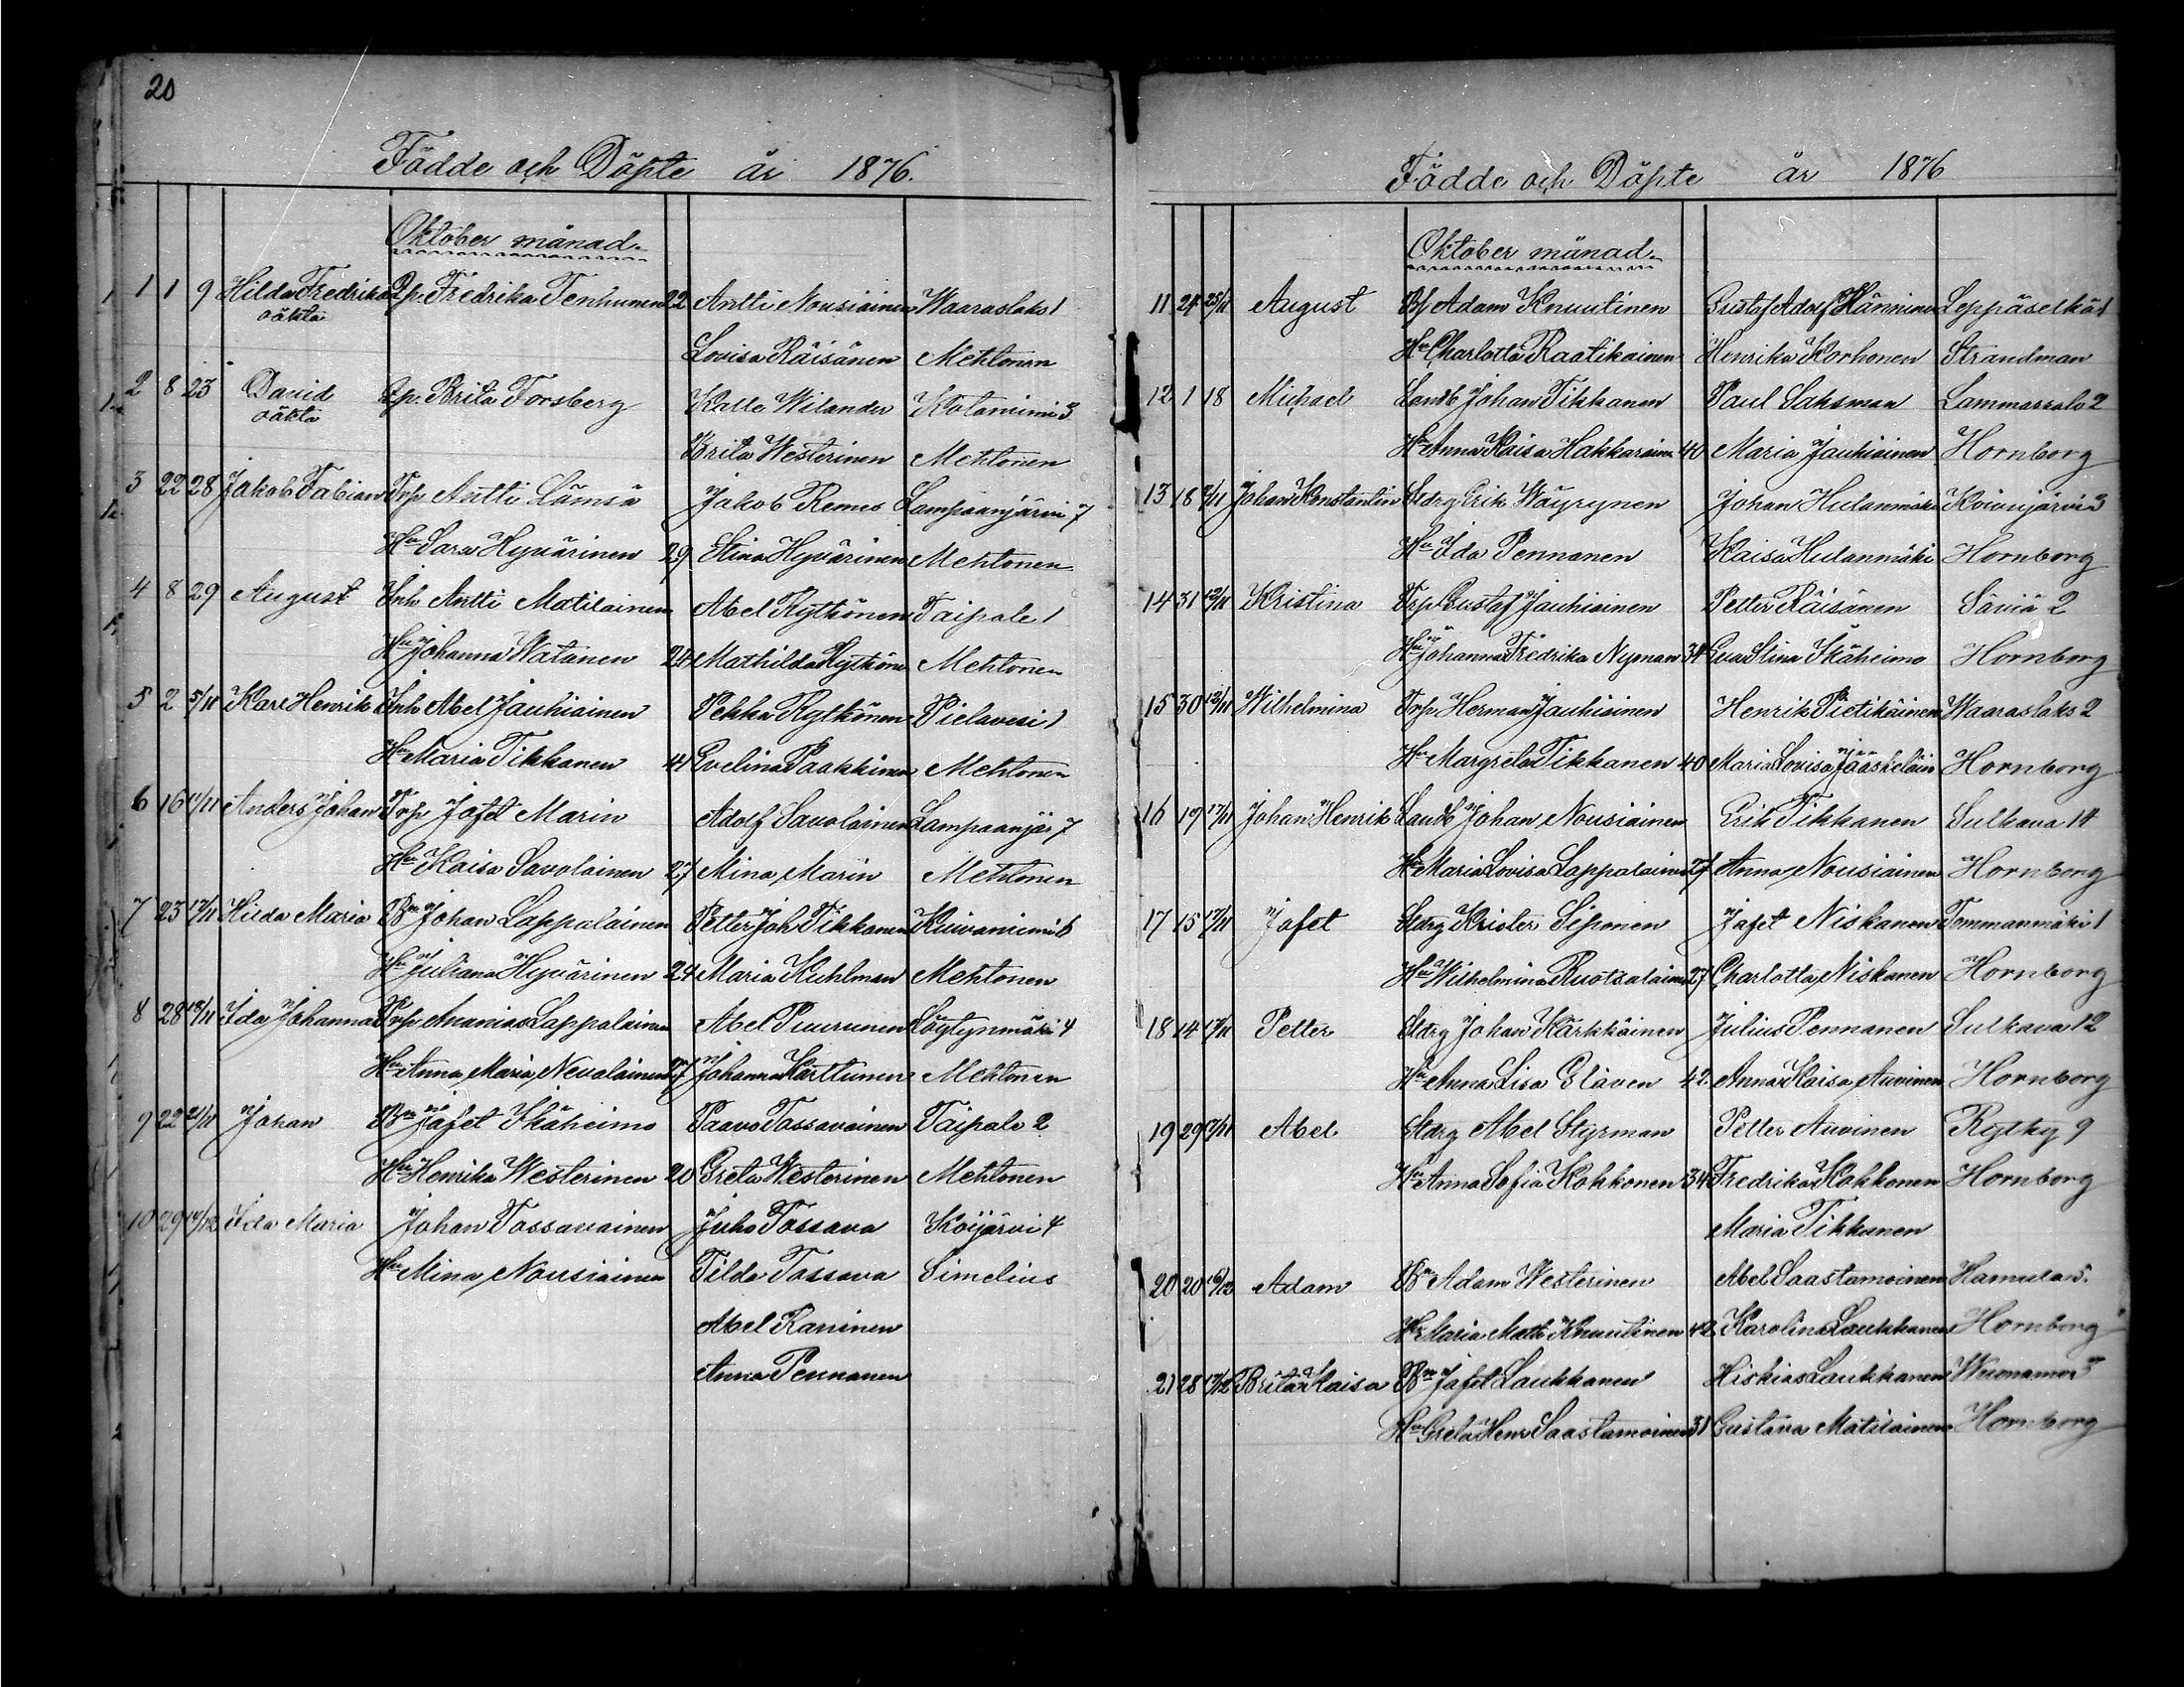 20
Födde och Döpte år 1876.
Oktober månad.
1 1 9 Hilda Fredrika Pp. Fredrika Tenhunen 22 Antti Nousiainen Waaraslaks 1
oäkta Lovisa Räisänen Mehtonen
2 8 23 David Pp. Brita Forsberg Kalle Wilander Kotaniemi 3
oäkta Brita Westerinen Mehtonen
3 22 28 Jakob Fabian Trp Antti Lämsä Jakob Remes Lampaanjärvi 7
Hu Sara Hyvärinen 29 Stina Hyvärinen Mehtonen
4 8 29 August Inh Antti Matilainen Abel Rytkönen Taipale 1
Hu Johanna Watanen 24 Mathilda Rytköne Mehtonen
5 2 5/11 Karl Henrik Inh Abel Jauhiainen Pekka Rytkönen Pielavesi 1
Hu Maria Tikkanen 41 Evelina Paakkinen Mehtonen
6 16 11/11 Anders Johan Trp Jafet Marin Adolf Savolainen Lampaanjär 7
Hu Kaisa Savolainen 27 Mina Marin Mehtonen
7 23 12/11 Hilda Maria Bn Johan Lappalainen Petter Joh Tikkanen Kuivaniemi 6
Hu Juliana Hyvärinen 24 Maria Kuhlman Mehtonen
8 28 18/11 Ida Johanna Trp Ananias Lappalainen Abel Puurunen Löytynmäki 4
Hu Anna Maria Nevalainen 27 Johanna Karttunen Mehtonen
9 22 21/11 Johan Bn Jafet Ikäheimo Paavo Tossavainen Taipale 2
Hu Henrika Westerinen 20 Greta Westerinen Mehtonen
10 29 14/12 Ida Maria Johan Tossavainen Juho Tossava Koijärvi 4
Hu Mina Nousiainen Tilda Tossava Simelius
Abel Karinen
Anna Pennanen
Födde och Döpte år 1876
Oktober månad.
11 24 25/11 August Bf Adam Knuutinen Gustaf Adolf Hänninen Leppäselkä 1
Hu Charlotta Raatikainen Henrika Korhonen Strandman
12 1 18 Michael Landb Johan Tikkanen Paul Saksman Lammassalo 2
Hu Anna Kaisa Hakkaraine 40 Maria Jauhiainen Hornborg
13 18 Johan Konstantin Stdrg Erik Wäyrynen Johan Hulanmäki Koivujärvi 3
Hu Ida Pennanen Kaisa Hulanmäki Hornborg
14 31 12/11 Kristina Trp Gustaf Jauhiainen Petter Räisänen Säviä 2
Hu Johanna Fredrika Nyman 34 Eva Stina Ikäheimo Hornborg
15 30 13/11 Wilhelmina Trp Herman Jauhiainen Henrik Pietikäinen Waaraslaks 2
Hu Margreta Tikkanen 40 Maria Lovisa Jääskeläin Hornborg
16 19 17/11 Johan Henrik Landb Johan Nousiainen Erik Tikkanen Sulkava 14
Hu Maria Lovisa Lappalaine 27 Anna Nousiainen Hornborg
17 15 17/11 Jafet Stdrg Krister Siponen Jafet Niskanen Tommanmäki 1
Hu Wilhelmina Ruotsalaine 27 Charlotta Niskanen Hornborg
18 14 17/11 Petter Stdrg Johan Kärkkäinen Julius Pennanen Sulkava 12
Hu Anna Lisa Glaven 42 Anna Kaisa Auvinen Hornborg
19 29 17/11 Abel Stdrg Abel Styrman Petter Auvinen Rytky 9
Hu Anna Sofia Kokkonen 34 Fredrika Kokkonen Hornborg
Maria Tikkanen
20 20 Adam Bn Adam Westerinen Abel Saastamoinen Hamula 5.
Hu Maria Math Knuutinen 42 Karolina Laukkanen Hornborg
21 28 17/12 Brita Kaisa Bn Jafet Laukkanen Hiskias Laukkanen 3
Hu Greta Henr Saastamoinen 31 Gustava Matilainen Hornborg